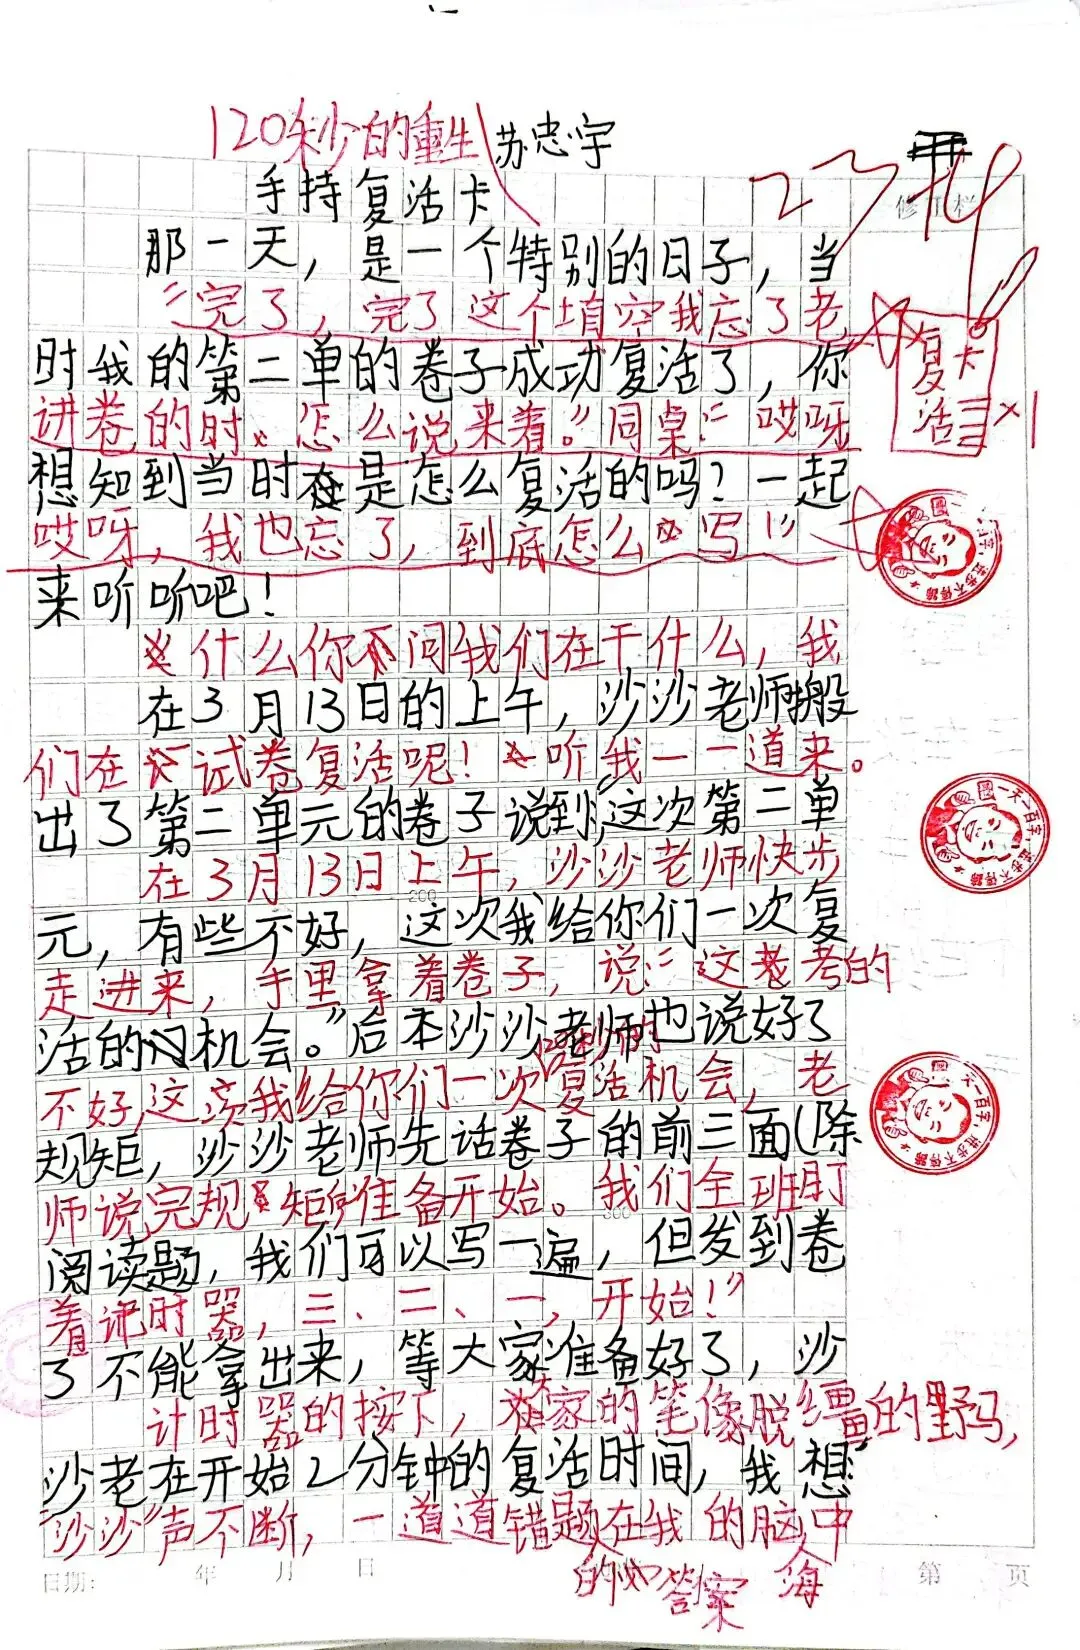 120秒的重生 苏忠宇
手持复活卡
23
修正栏
那一天，是一个特别的日子，当
“完了，完了这个填空我忘了老
复活卡×1
时我的第二单的卷子成功复活了，你
进卷的时、怎么说来着。”同桌：“哎呀
想知到当时在是怎么复活的吗？一起
哎呀，我也忘了，到底怎么写！”
来听听吧！
什么你问我们在干什么，我
在3月13日的上午，沙沙老师搬
们在试卷复活呢！听我一一道来。
出了第二单元的卷子说到“这次第二单
在3月13日上午，沙沙老师快步
200
元，有些不好，这次我给你们一次复
走进来，手里拿着卷子，说：“这考的
活的机会。”后本沙沙老师也说好了
不好，这次我给你们一次120秒的复活机会，老
规矩，沙沙老师先话卷子的前三面(除
师说完规矩准备开始。我们全班盯
300
阅读题，我们可以写一遍，但发到卷
着记时器，三、二、一，开始！”
了不能拿出来，等大家准备好了，沙
计时器的按下，大家的笔像脱缰的野马，
沙老在开始2分钟的复活时间，我想
“沙沙”声不断，一道道错题的答案在我的脑海中
日期： 年 月 日 第 页
一天一百字，进步不停蹄
一天一百字，进步不停蹄
一天一百字，进步不停蹄